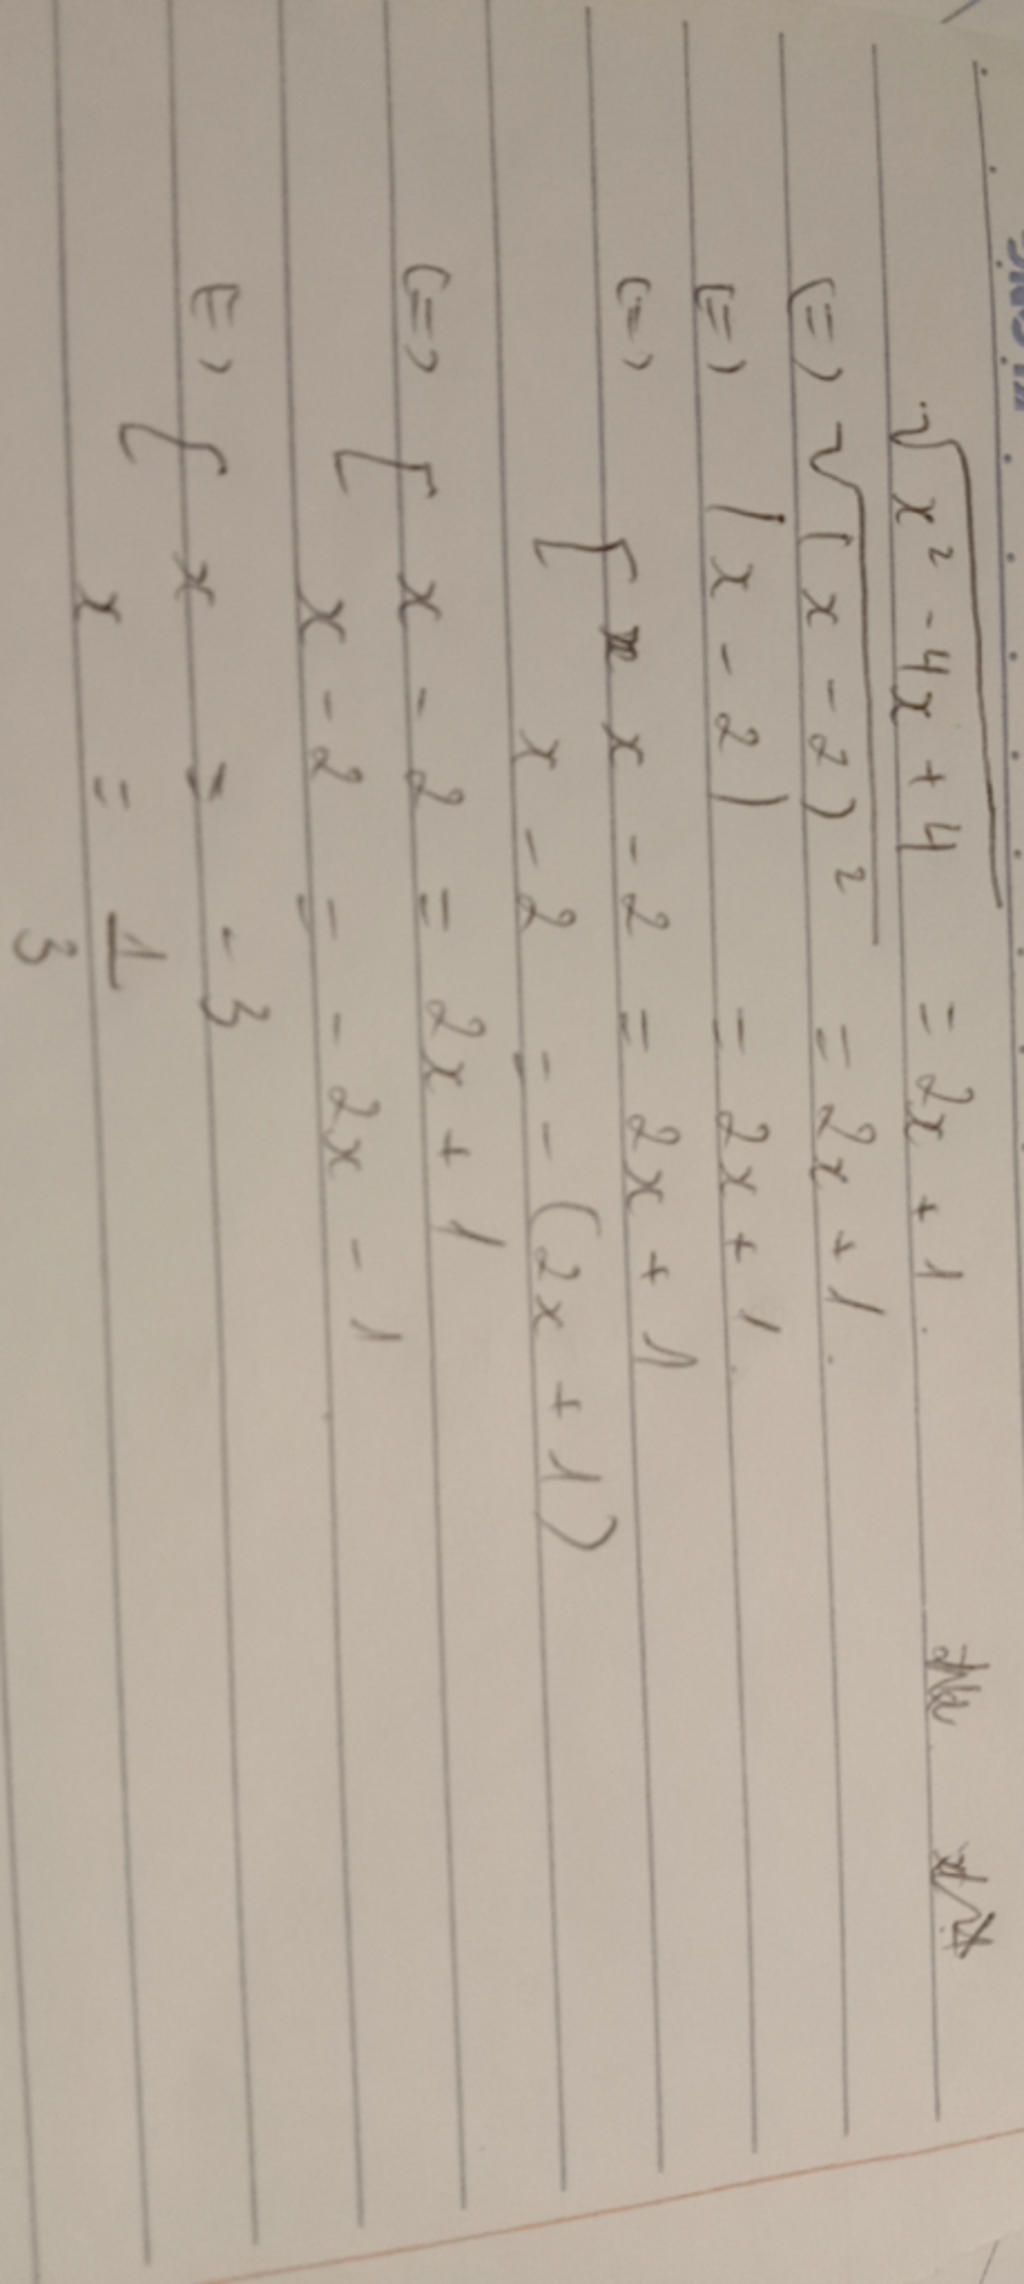 √(x² - 4x + 4) = 2x + 1.
(=) √(x - 2)² = 2x + 1.
(=) |x - 2| = 2x + 1.
(=) [ x - 2 = 2x + 1
x - 2 = - (2x + 1)
(=) [ x - 2 = 2x + 1
x - 2 = - 2x - 1
(=) [ x = - 3
x = 1/3